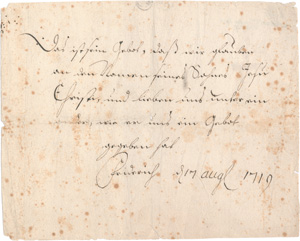 Das ist sein Gebot, daß wir glauben
an den Namen seines Sohnes Jesu
Christi, und lieben uns unter ein
ander, wie er uns ein Gebot
gegeben hat
d 17 augl 1719